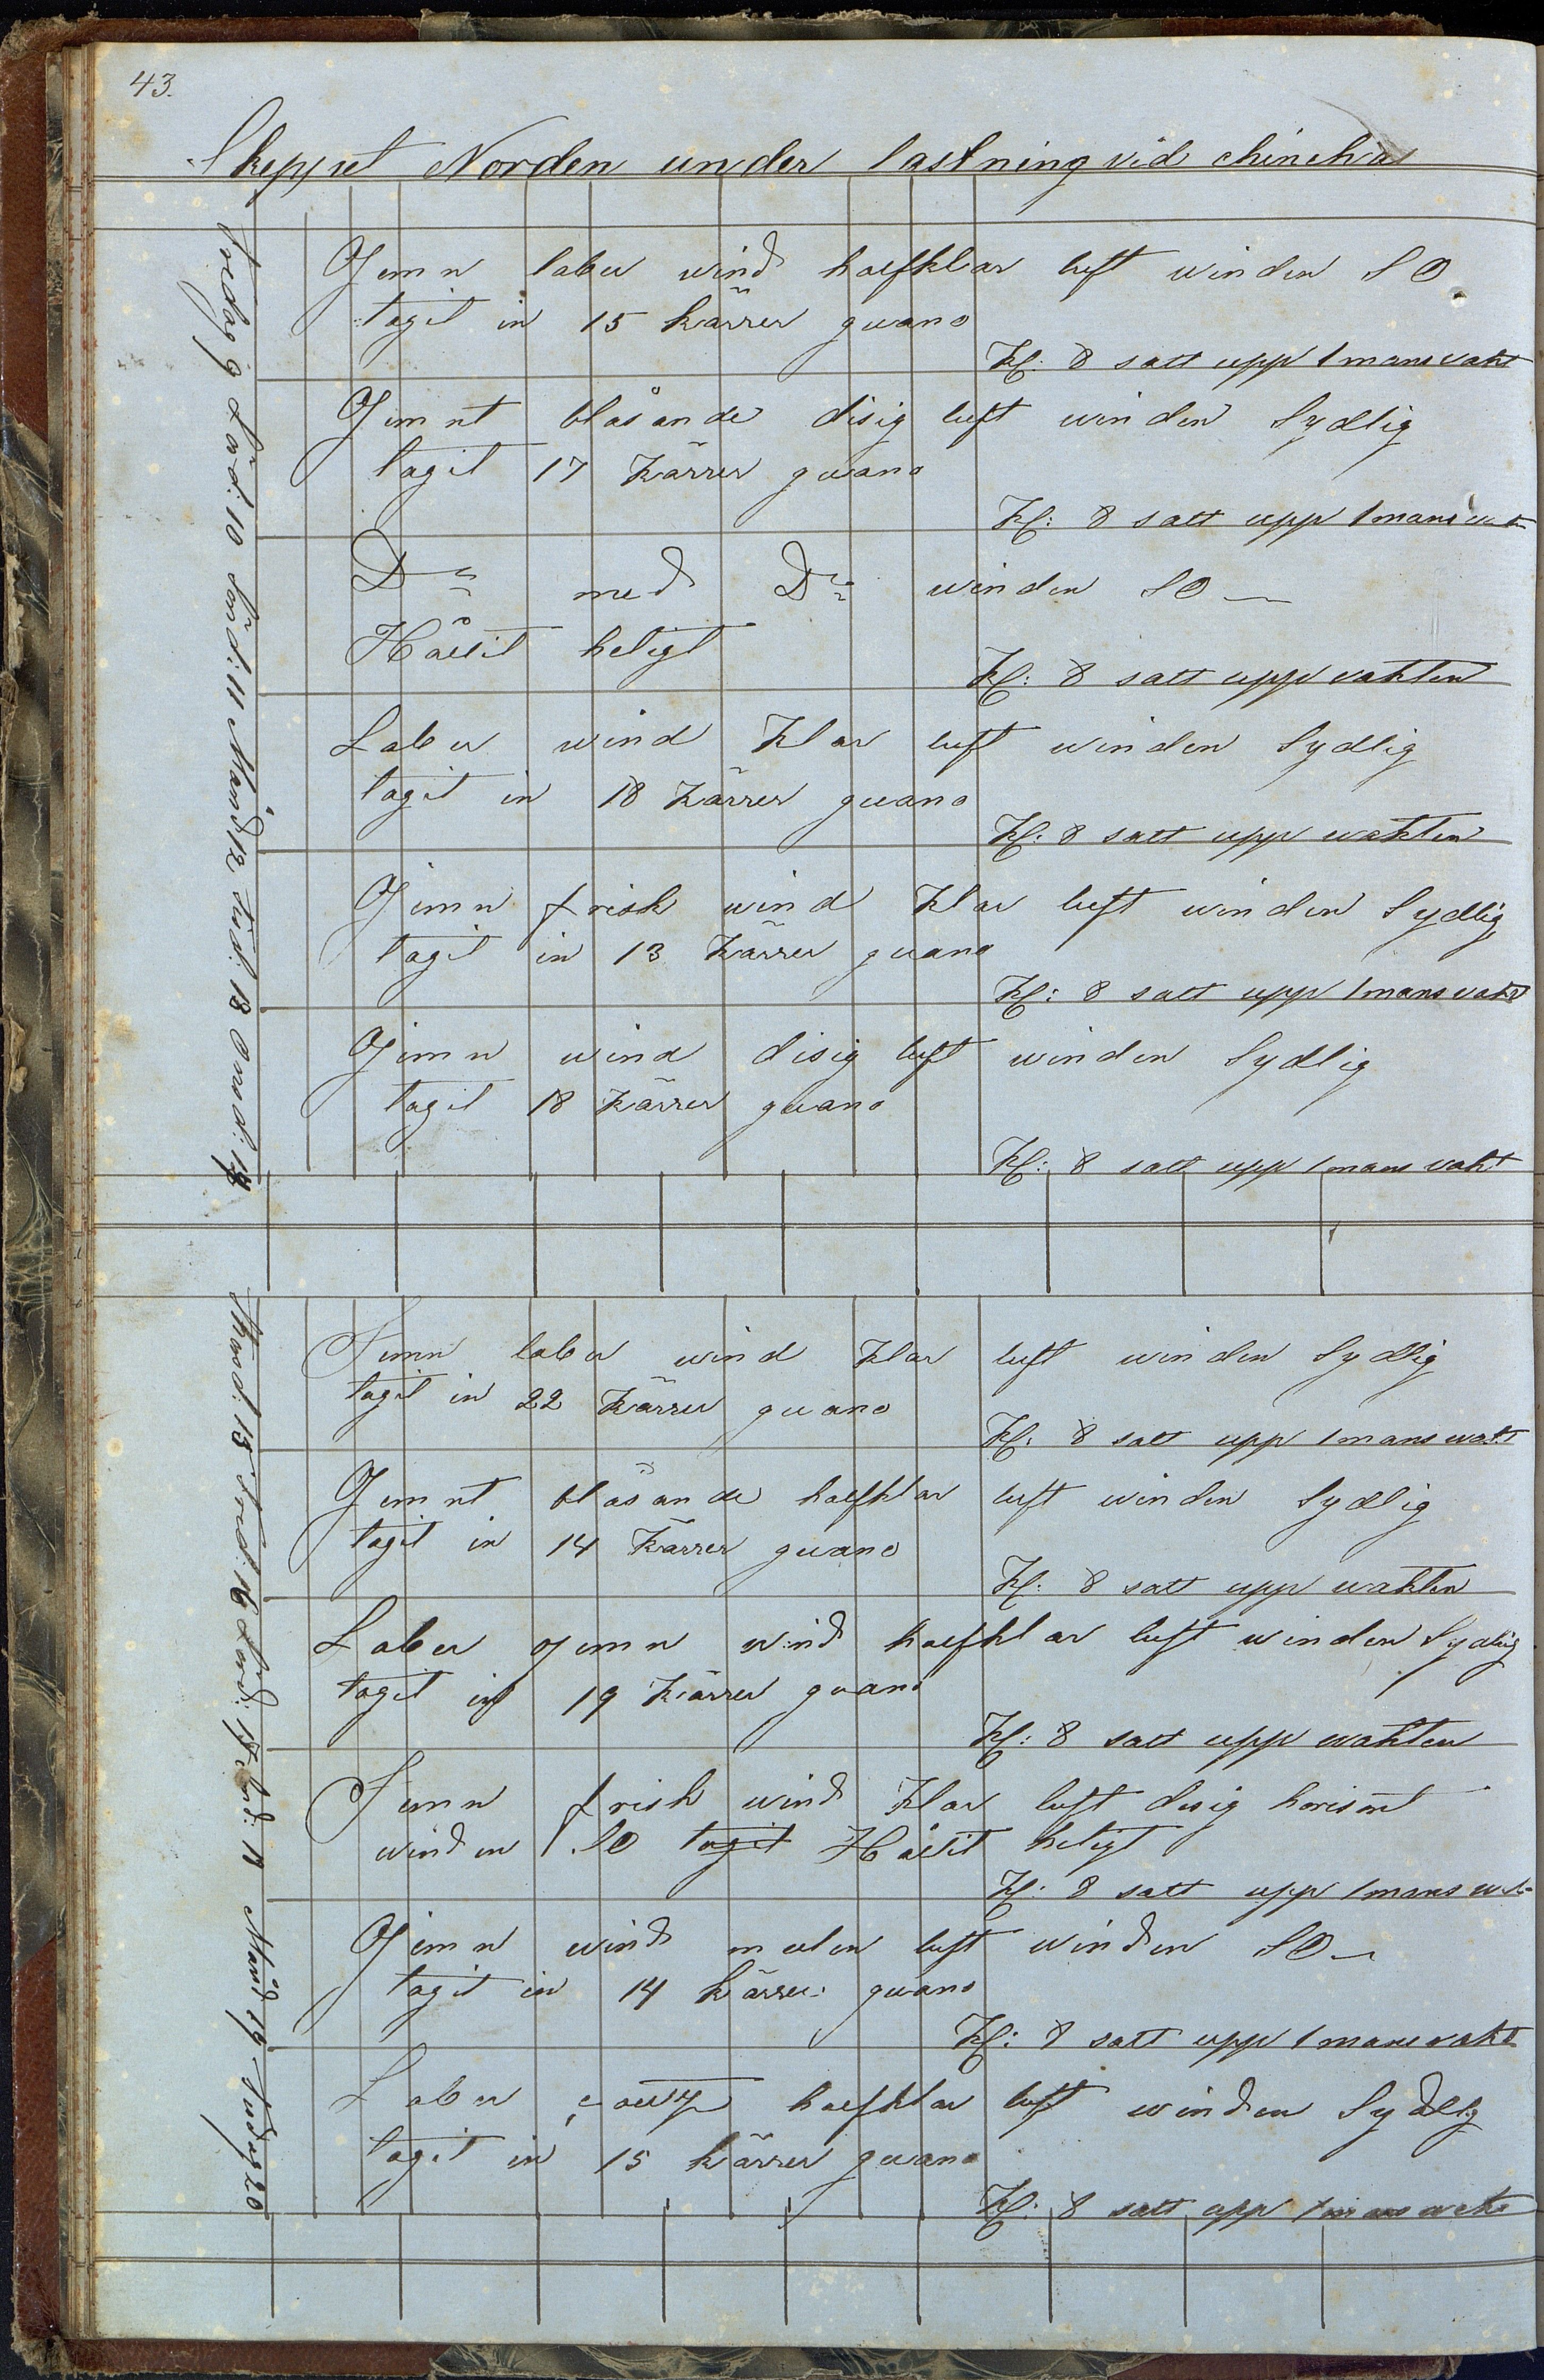 43.
Skeppet Norden under lastning vid chincha
Fredag 9 Lörd: 10 Sönd: 11 Månd 12 Tisd: 13 Onsd: 14
Jemn laber wind halfklar luft winden SO
tagit in 15 kärrer guano
Kl: 8 satt upp 1 mans vakt
Jemnt blåsande disig luft winden Sydlig
tagit 17 kärrer guano
Kl: 8 satt upp 1 mans
Do med Do winden SO
Hållit heligt
Kl: 8 satt upp vakten
Laber wind Klar luft winden Sydlig
tagit in 18 kärrer guano
Kl: 8 satt upp wakten
Jemn frisk wind Klar luft winden Sydlig
tagit in 13 kärrer guano
Kl: 8 satt upp 1 mans vakt
Jemn wind disig luft winden Sydlig
tagit 18 kärrer guano
Kl: 8 satt upp 1 mans vakt
Thorsd: 15 Fred: 16 Lörd: 17 18 Månd 19 Tisdag 20
Jemn laber wind Klar luft winden Sydlig
tagit in 22 Kärrer guano
Kl: 8 satt upp 1 mans wakt
Jemnt blåsande halfklar luft winden Sydlig
tagit in 14 Kärrer guano
Kl: 8 satt upp wakten
Laber jemn wind halfklar luft winden Sydlig
tagit in 19 Kärrer guano
Kl: 8 satt upp wakten
Jemn frisk wind Klar luft disig horisont
winden SO tagit Hållit heligt
Kl: 8 satt upp 1 mans
Jemn wind mulen luft winden SO
tagit in 14 kärrer guano
Kl: 8 satt upp 1 mans vakt
Laber halfklar luft winden Sydlig
tagit in 15 kärrer guano
Kl: 8 satt upp 1 mans wakt